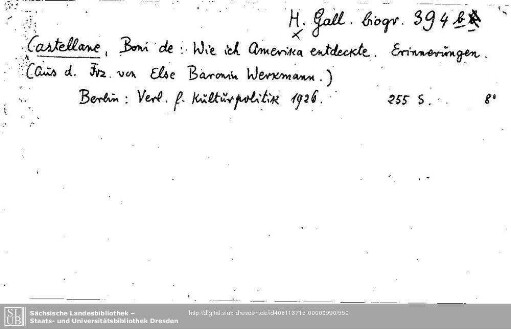 H. Gall. biogr. 394
Castellane, Boni de: Wie ich Amerika entdeckte. Erinnerungen.
(Aus d. Frz. von Else Baronin Werkmann.)
Berlin: Verl. f. Kulturpolitik 1926. 255 S. 8°
SLUB
Sächsische Landesbibliothek –
Staats- und Universitätsbibliothek Dresden